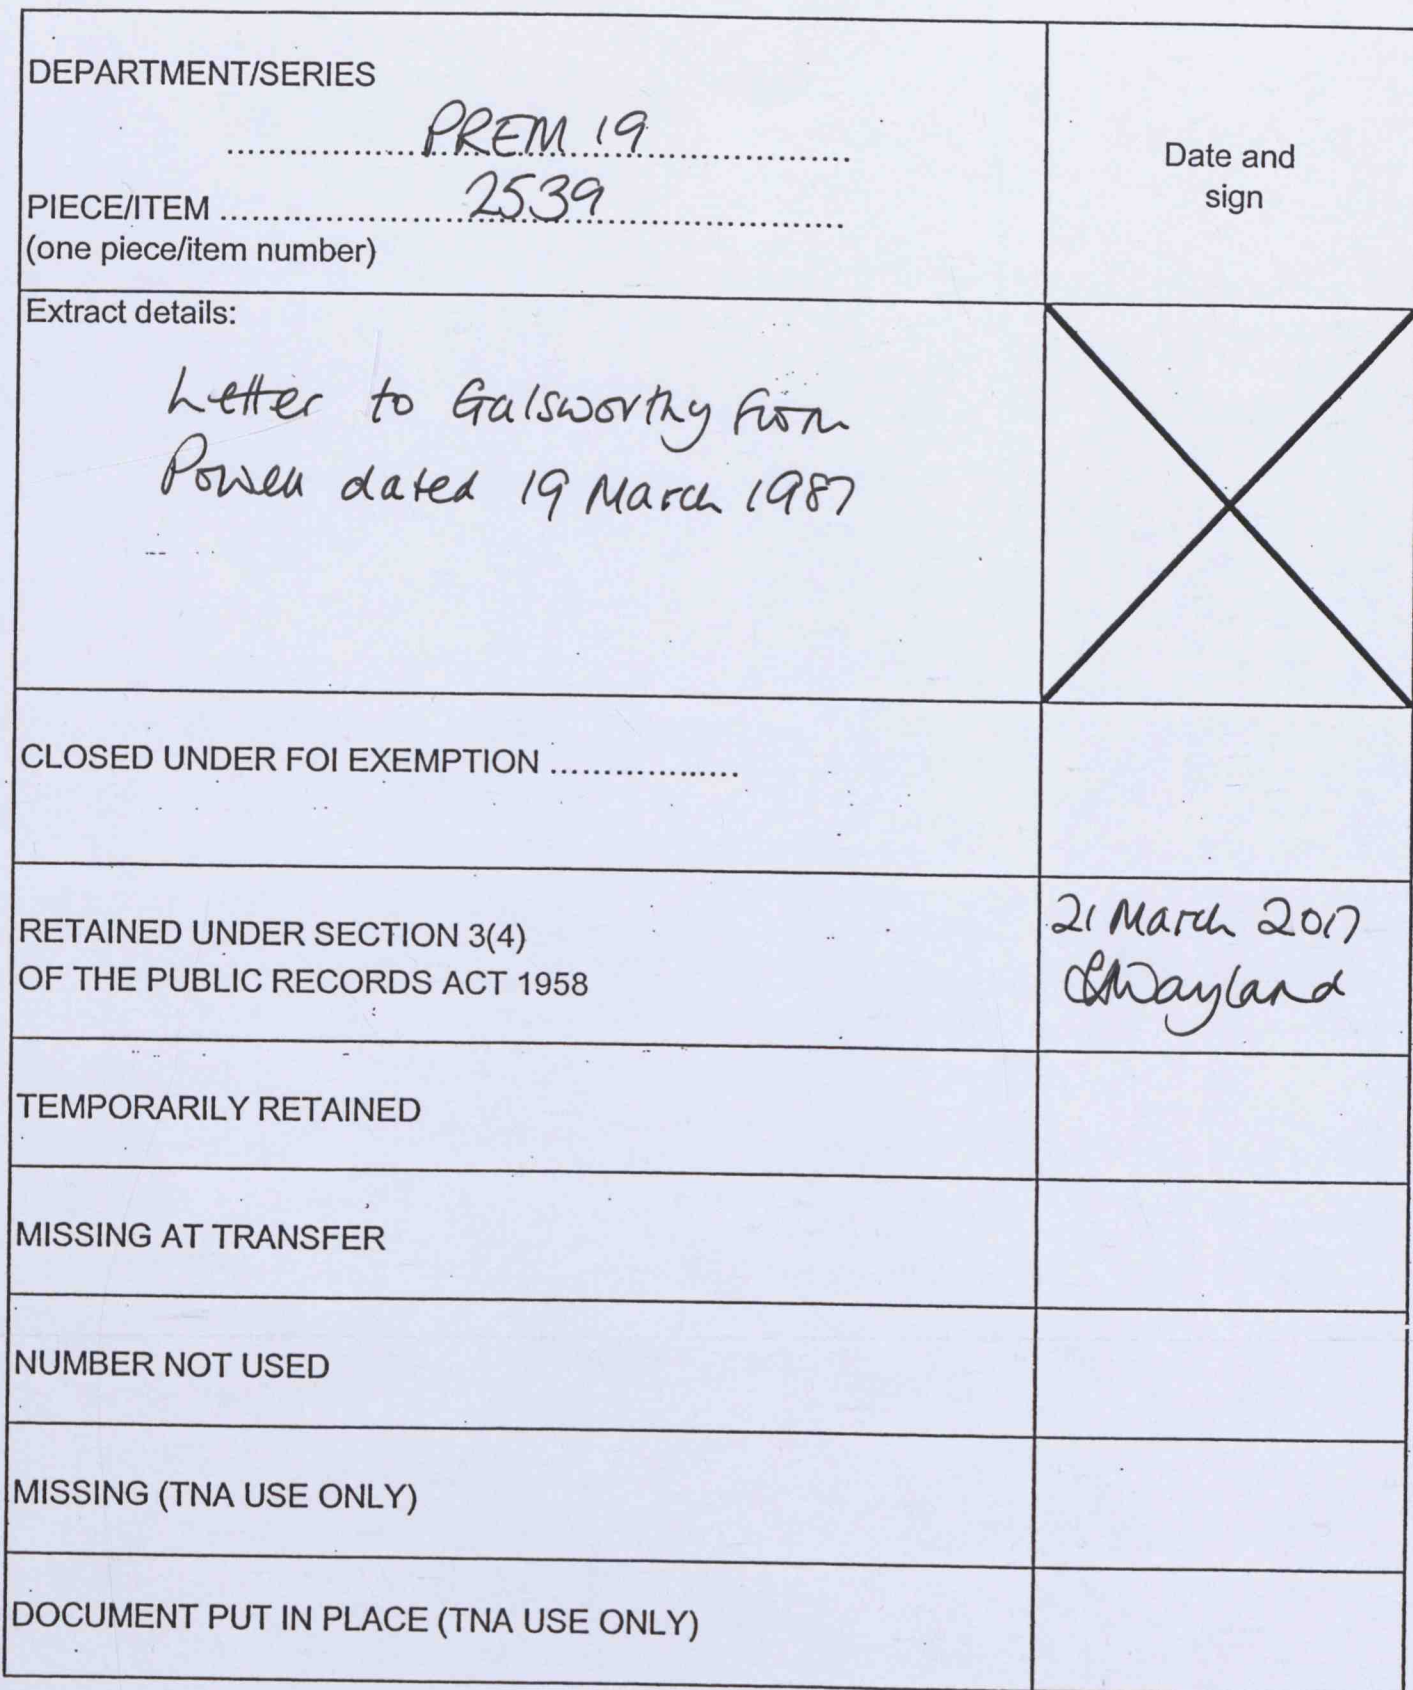 DEPARTMENT/SERIES
PREM 19
PIECE/ITEM 2539
(one piece/item number)
Date and
sign
Extract details:
Letter to Galsworthy from
Powell dated 19 March 1987
CLOSED UNDER FOI EXEMPTION ..................
RETAINED UNDER SECTION 3(4)
OF THE PUBLIC RECORDS ACT 1958
21 March 2017
Wayland
TEMPORARILY RETAINED
MISSING AT TRANSFER
NUMBER NOT USED
MISSING (TNA USE ONLY)
DOCUMENT PUT IN PLACE (TNA USE ONLY)